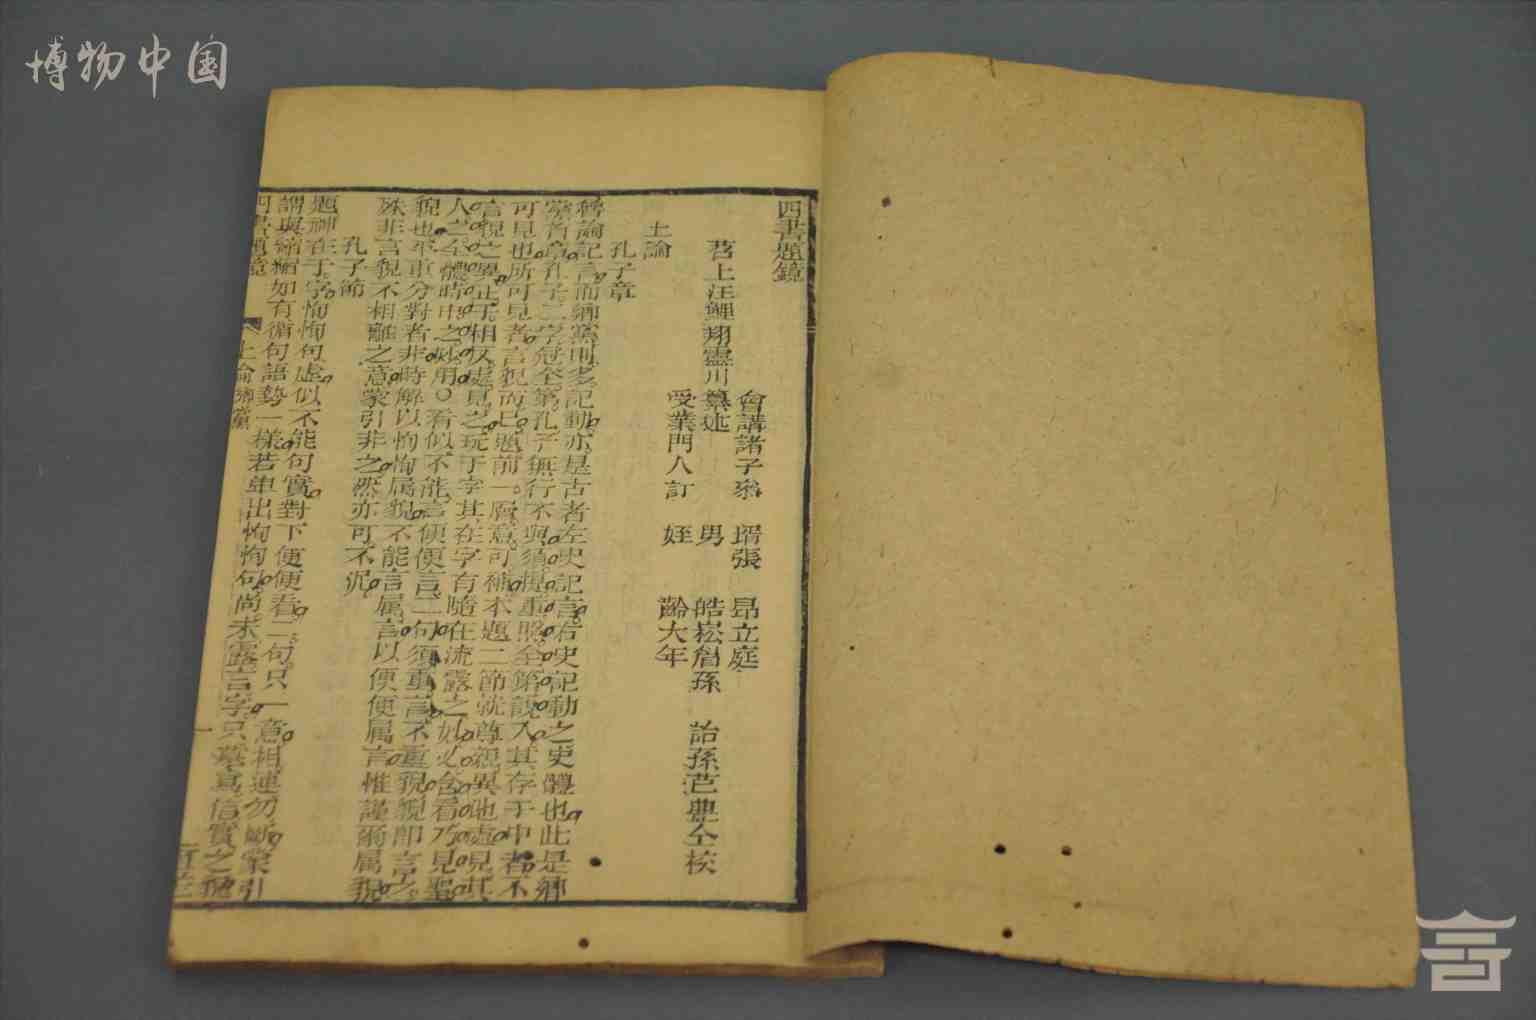 博物中国
四書題鏡
苕上汪鯉翔靈川纂述
會講諸子叅 壻張 昂立庭
男 皓崧詹孫 詒孫芑典仝校
受業門人訂 姪 齡大年
上論
孔子章
魯論記言而鄉黨則多記動亦是古者左史記言右史記動之史體也此是鄉
黨首章孔子二字冠全第孔子無行不與須提重照全第說入其存于中者不
可見也所可見者言貌而已題前一層意可補本題二節就尊親異地處見其
言貌之異正于相反處見之玩于字其在字有隨在流露之妙必合看乃見聖
人之全體時中之妙用○看似不能言便便言二句須重言不重貌貌即言之
貌也平重分對者非時解以恂恂属貌不能言属言以便便属言惟謹爾属貌
殊非言貌不相離之意蒙引非之然亦可不泥
孔子節
題神在于字恂恂句虛似不能句實對下便便看二句只一意相連勿斷蒙引
謂與縮縮如有循句語勢一樣若单出恂恂句尚未露言字只摹寫信實之貌
四書題鏡
上論鄉黨
一